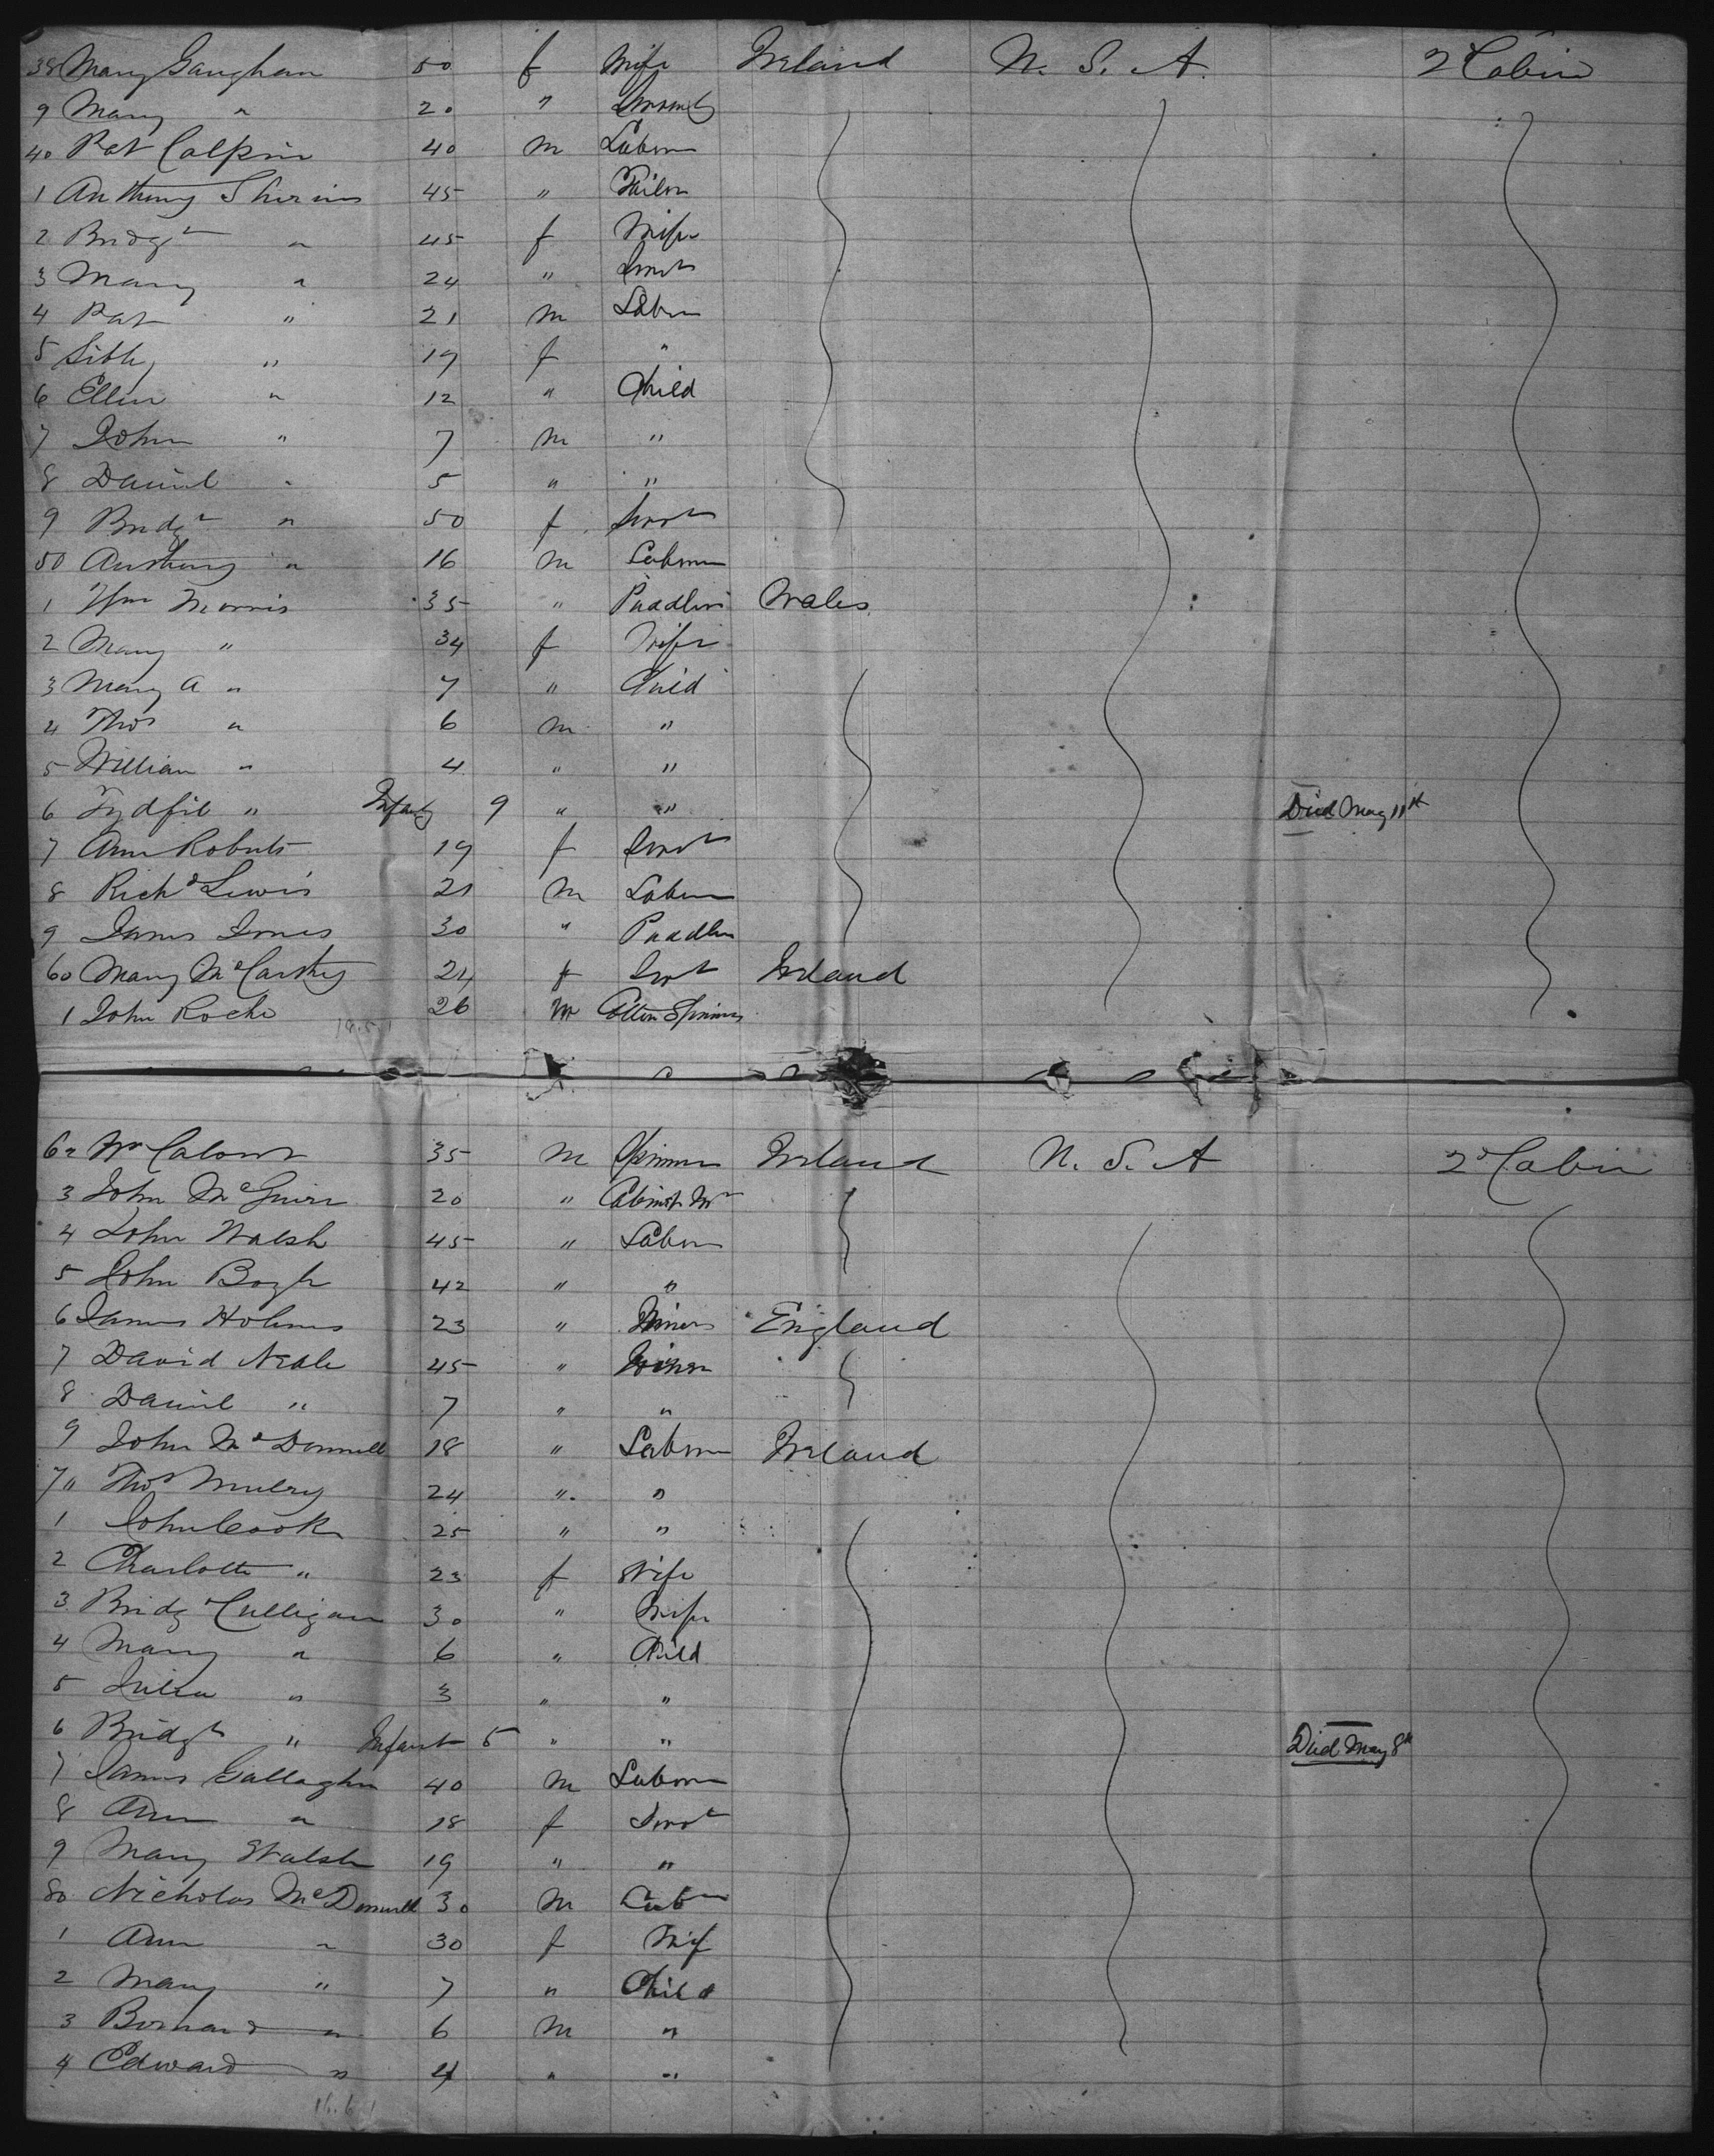 38 Mary Gaughan 50 f Wife Ireland U. S. A. 2 Cabin
9 Mary " 20 "
40 Pat Calpin 40 m Labour
1 Anthony Sherins 45 " Tailor
2 Bridgt " 45 f Wife
3 Mary " 24 " Servt
4 Pat " 21 m Labour
5 Sibby " 19 f "
6 Ellen " 12 " Child
7 John " 7 m "
8 Daniel " 5 " "
9 Bridgt " 50 f Servt
50 Anthony " 16 m Labour
1 Wm Morris 35 " Puddler Wales
2 Mary " 34 f Wife
3 Mary A " 7 " Child
4 Thos " 6 m "
5 William " 4 " "
6 Tydfil " Infant 9 " " Died May 11th
7 Ann Roberts 19 f Servt
8 Richd Lewis 21 m Labour
9 James Jones 30 " Puddler
60 Mary McCarthy 24 f Servt Ireland
1 John Roche 26 m Cotton Spinner
62 Wm 35 m Spinner Ireland U. S. A 2d Cabin
3 John McGuire 20 " Cabinet Mr
4 John Walsh 45 " Labour
5 John Boyle 42 " "
6 James Holmes 23 " Miner England
7 David Neale 45 "
8 Daniel " 7 " "
9 John McDonnell 18 " Labour Ireland
70 Thos Mulry 24 " "
1 John Cook 25 " "
2 Charlotte " 23 f Wife
3 Bridgt Culligan 30 " Wife
4 Mary " 6 " Child
5 Julia " 3 " "
6 Bridgt " Infant 5 " " Died May 8th
7 James Gallagher 40 m Labour
8 Ann " 18 f Servt
9 Mary Walsh 19 " "
80 Nicholas McDonnell 30 m Labr
1 Ann " 30 f Wif
2 Mary " 7 " Child
3 Bernard " 6 m "
4 Edward " 4 " "